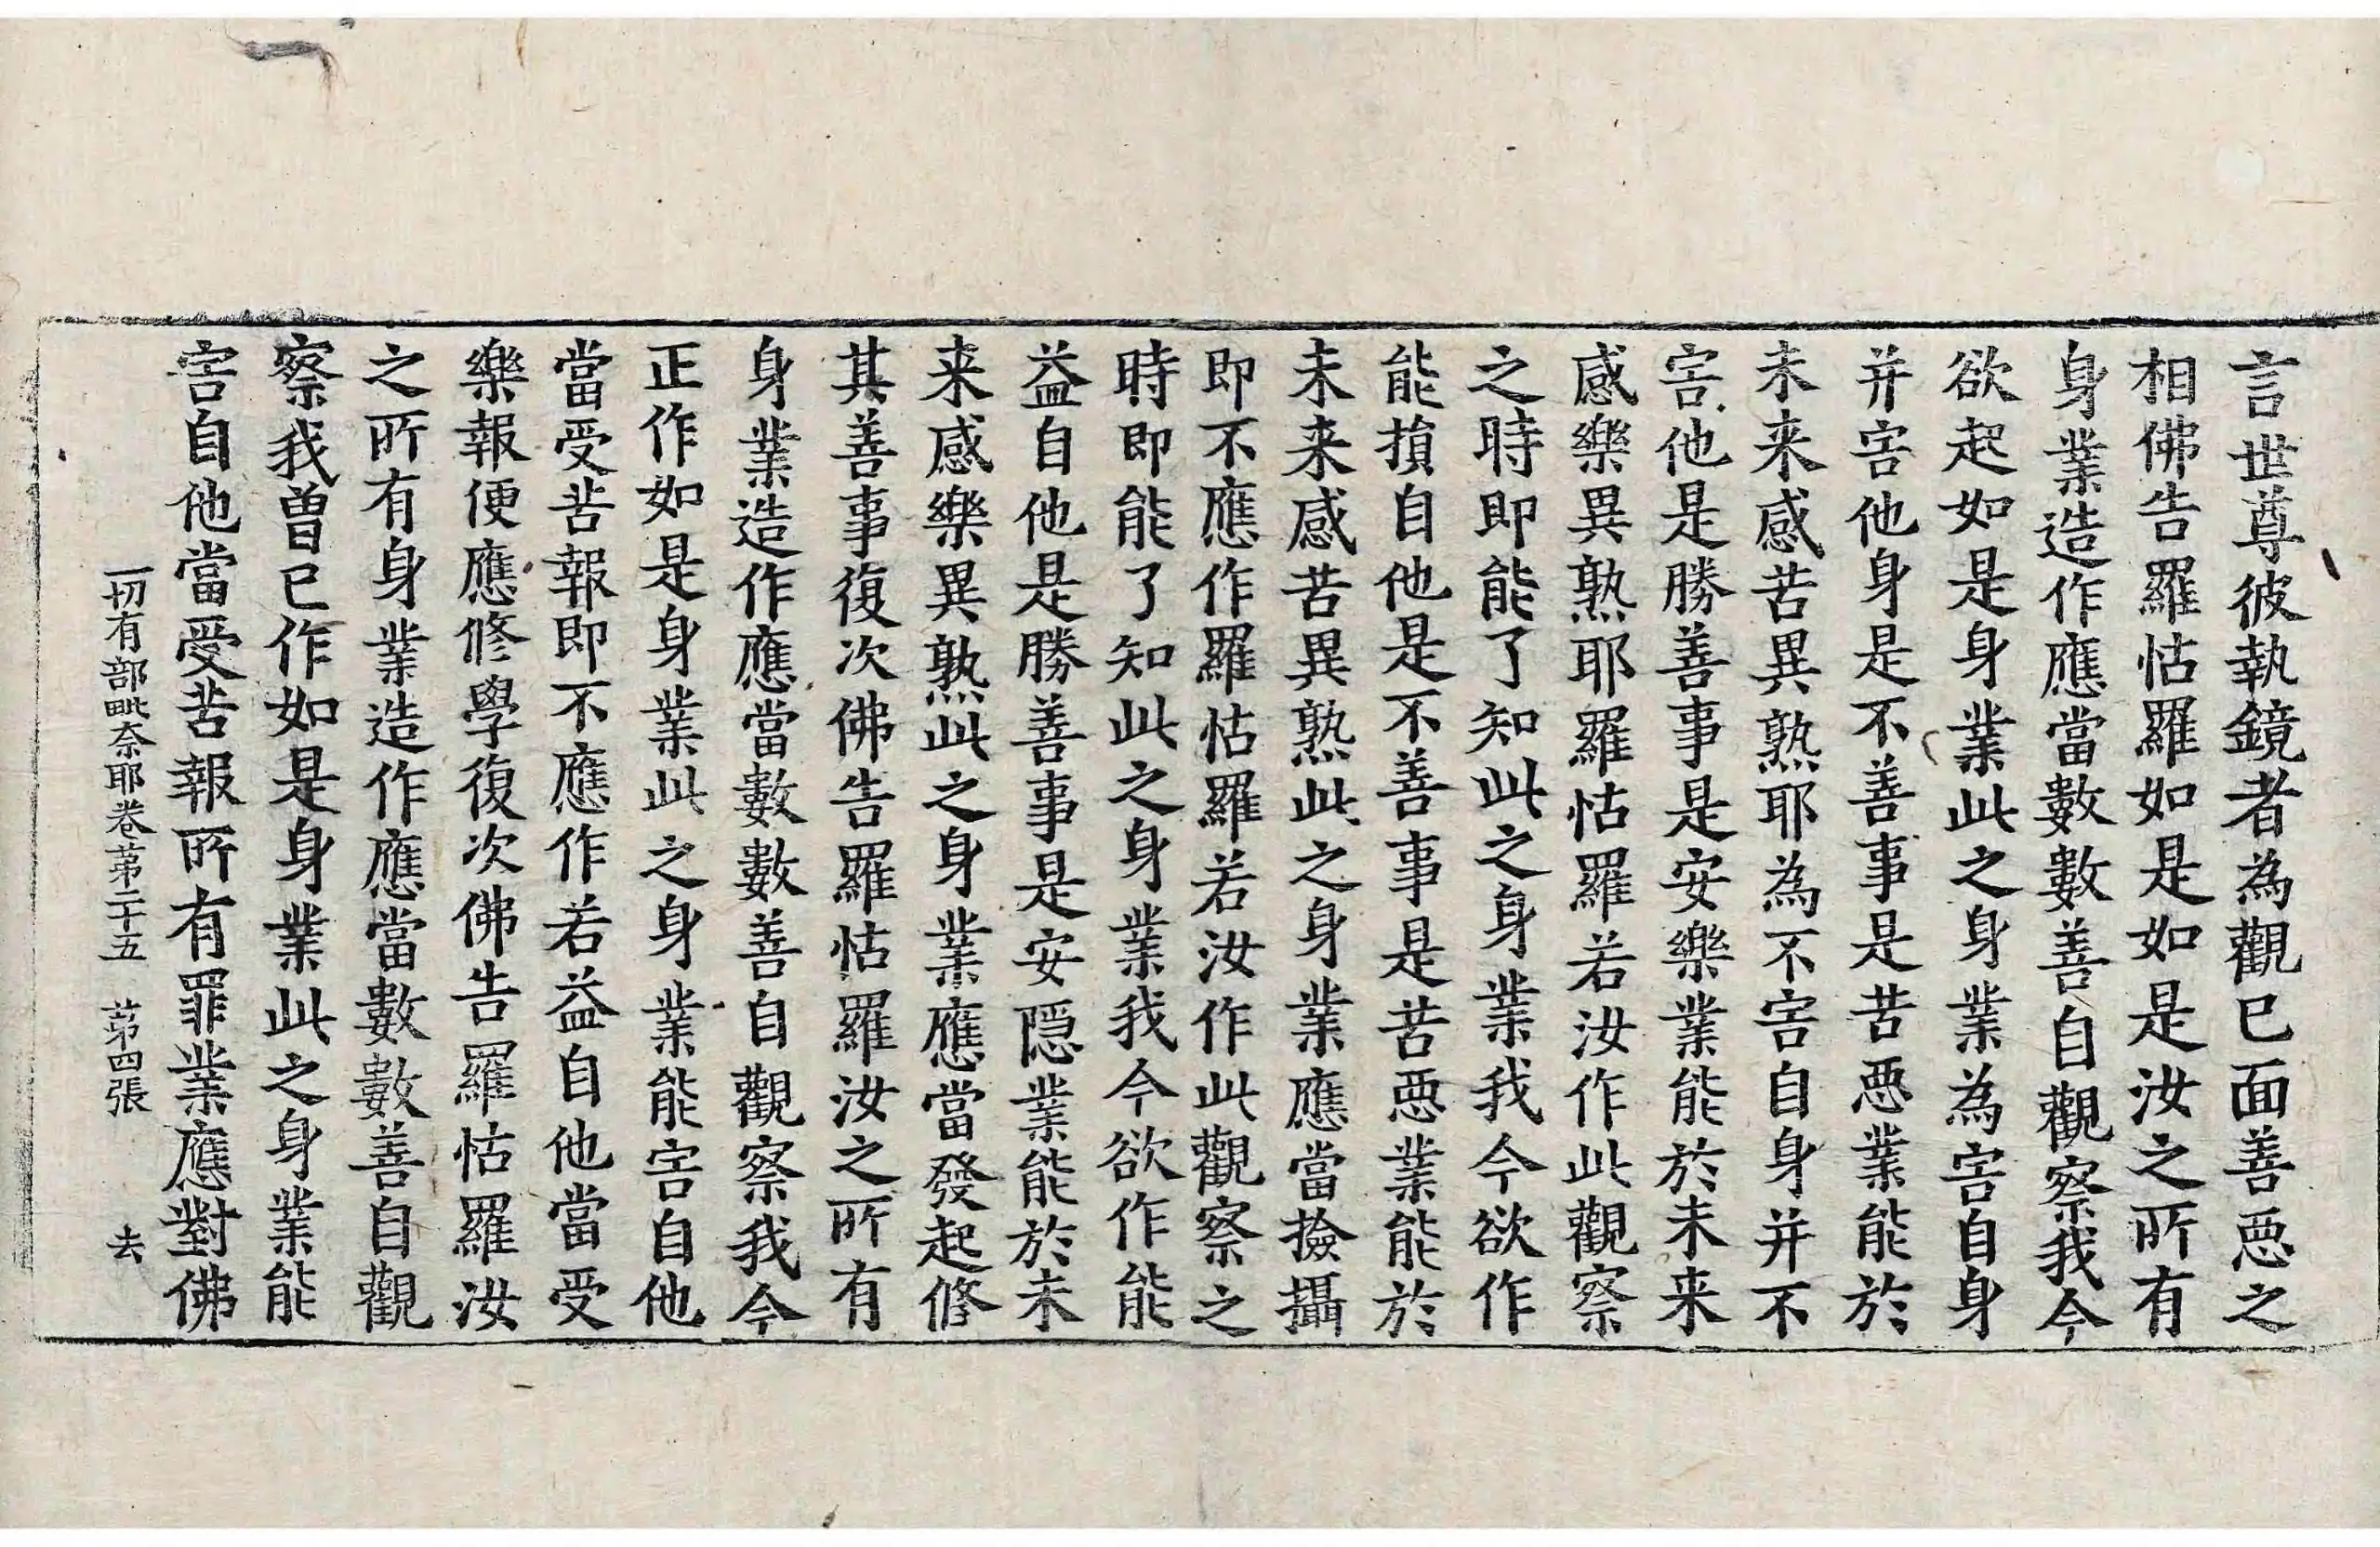 言世尊彼執鏡者為觀已面善惡之
相佛告羅怙羅如是如是汝之所有
身業造作應當數數善自觀察我今
欲起如是身業此之身業為害自身
并害他身是不善事是苦惡業能於
未来感苦異熟耶為不害自身并不
害他是勝善事是安樂業能於未来
感樂異熟耶羅怙羅若汝作此觀察
之時即能了知此之身業我今欲作
能損自他是不善事是苦惡業能於
未来感苦異熟此之身業應當撿攝
即不應作羅怙羅若汝作此觀察之
時即能了知此之身業我今欲作能
益自他是勝善事是安隱業能於未
来感樂異熟此之身業應當發起修
其善事復次佛告羅怙羅汝之所有
身業造作應當數數善自觀察我今
正作如是身業此之身業能害自他
當受苦報即不應作若益自他當受
樂報便應修學復次佛告羅怙羅汝
之所有身業造作應當數數善自觀
察我曾已作如是身業此之身業能
害自他當受苦報所有罪業應對佛
一切有部毗奈耶卷苐二十五 苐四張 去